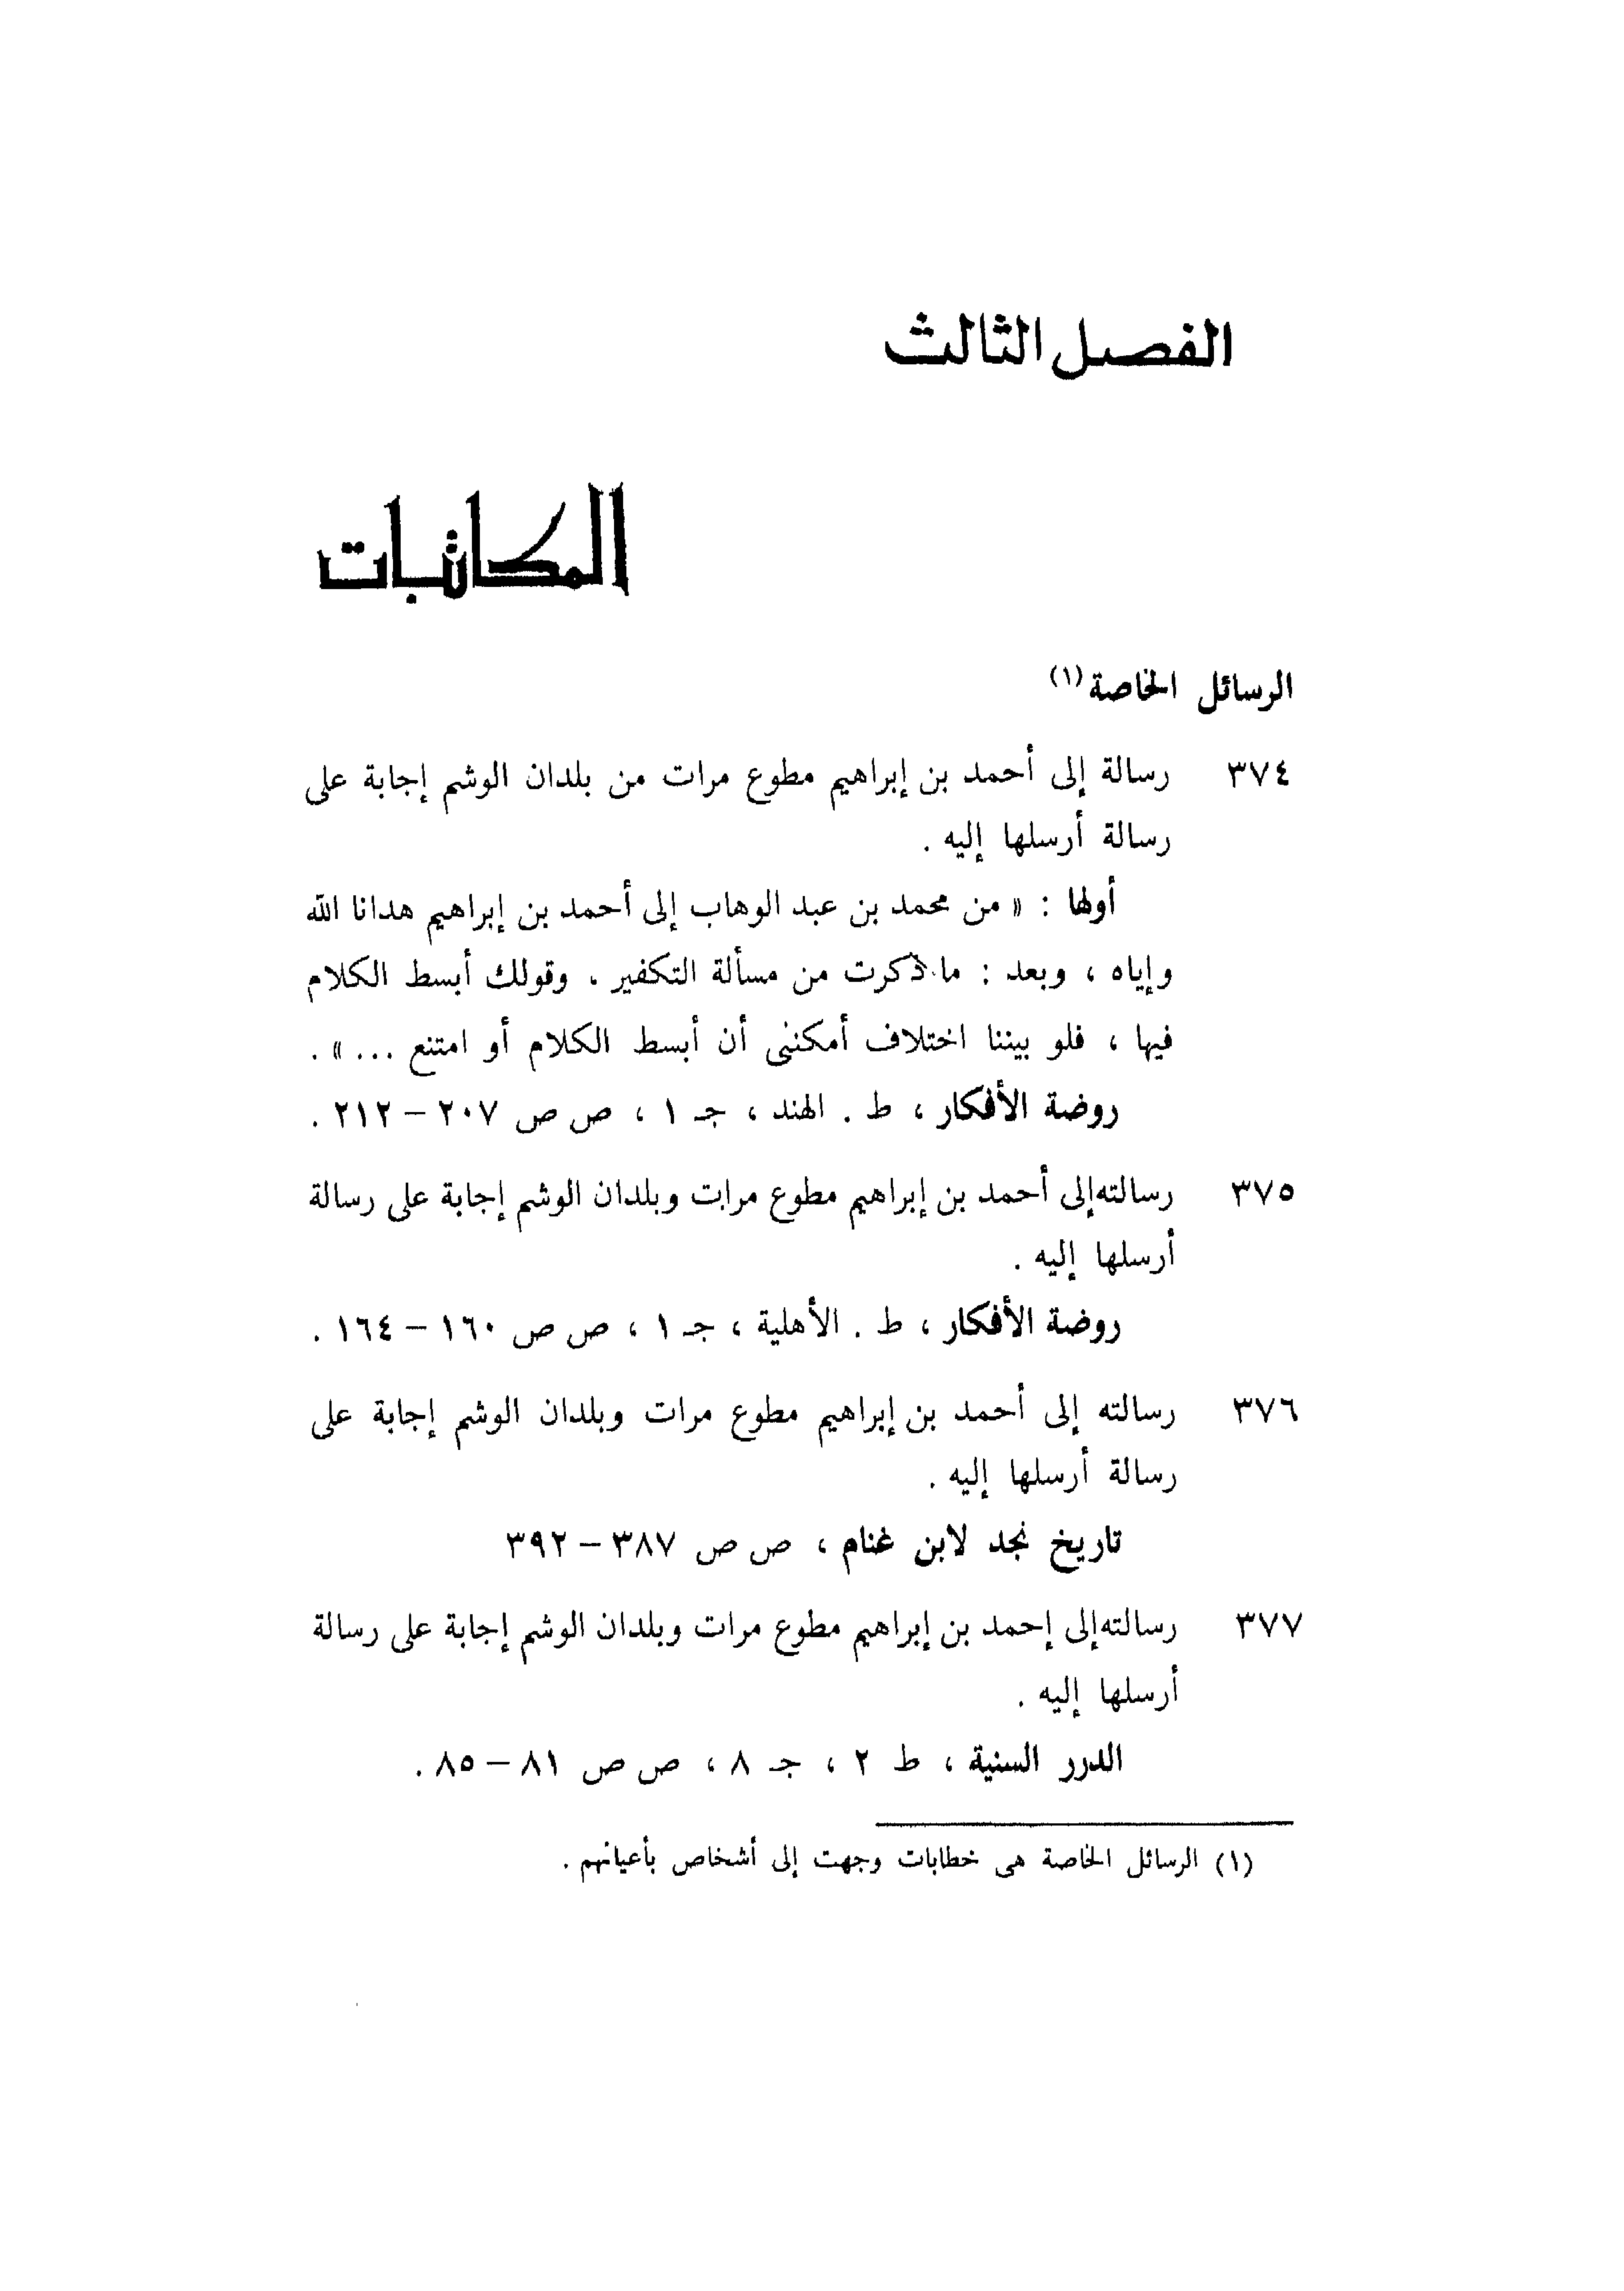 الفصل الثالث
المكاتبات
الرسائل الخاصة(١)
٣٧٤ رسالة إلى أحمد بن إبراهيم مطوع مرات من بلدان الوشم إجابة على
رسالة أرسلها إليه .
أولها : « من محمد بن عبد الوهاب إلى أحمد بن إبراهيم هدانا الله
وإياه ، وبعد : ما ذكرت من مسألة التكفير . وقولك أبسط الكلام
فيها ، فلو بيننا اختلاف أمكننى أن أبسط الكلام أو امتنع ... » .
روضة الأفكار ، ط . الهند ، جـ ١ ، ص ص ٢٠٧ – ٢١٢ .
٣٧٥ رسالته إلى أحمد بن إبراهيم مطوع مرابت وبلدان الوشم إجابة على رسالة
أرسلها إليه .
روضة الأفكار ، ط . الأهلية ، جـ ١ ، ص ص ١٦٠ – ١٦٤ .
٣٧٦ رسالته إلى أحمد بن إبراهيم مطوع مرات وبلدان الوشم إجابة على
رسالة أرسلها إليه .
تاريخ نجد لابن غنام ، ص ص ٣٨٧ – ٣٩٢
٣٧٧ رسالته إلى إحمد بن إبراهيم مطوع مرات وبلدان الوشم إجابة على رسالة
أرسلها إليه .
الدرر السنية ، ط ٢ ، جـ ٨ ، ص ص ٨١ – ٨٥ .
(١) الرسائل الخاصة هى خطابات وجهت إلى أشخاص بأعيانهم .